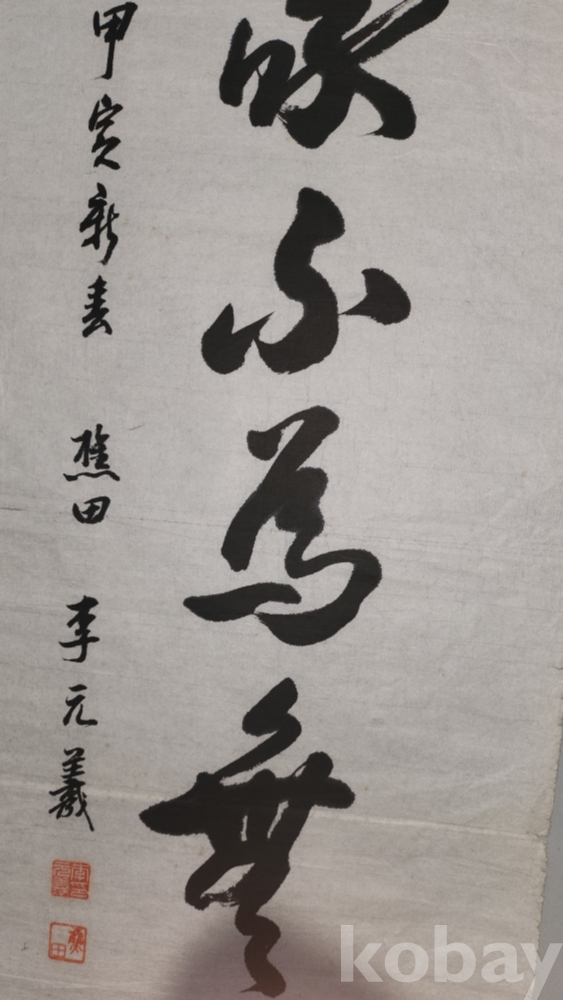 不為無
甲寅新春 樵田 李元羲
kobay